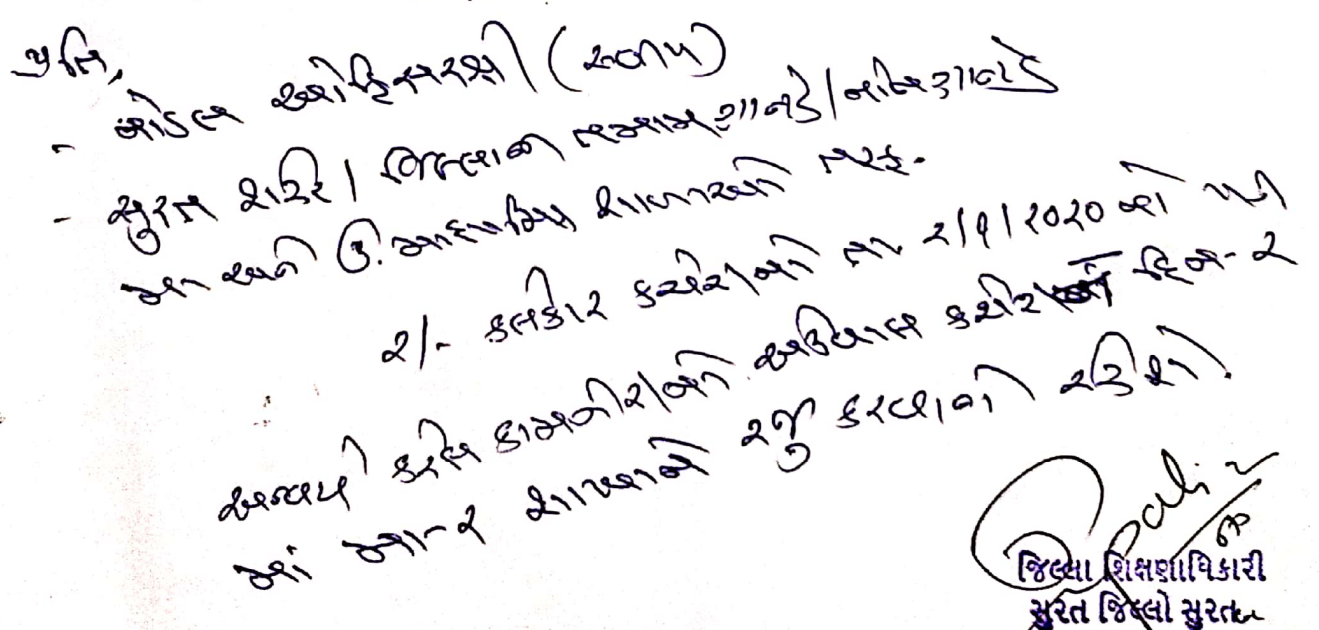 પ્રતિ,
- નોડલ ઓફિસરશ્રી (તમામ)
- સુરત શહેર / જિલ્લાની તમામ ગ્રાન્ટેડ / નોનગ્રાન્ટેડ
મા અને ઉ.માધ્યમિક શાળાઓ તરફ.
૨/- કલેકટર કચેરીનો તા ૨/૧/૨૦૨૦ નો પત્ર
અન્વયે કરેલ કામગીરીનો અહેવાલ કચેરીના દિન-૨
માં મા-૨ શાખાને રજુ કરવાનો રહેશે.
જિલ્લા શિક્ષણાધિકારી
સુરત જિલ્લો સુરત